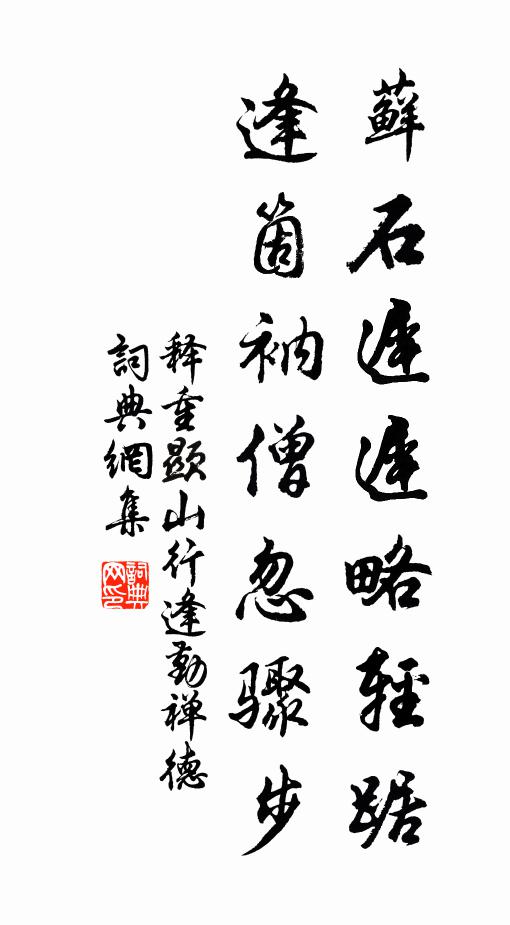 蘚石遲遲略輕踞
逢箇衲僧忽驟步
释重顯山行逢勤禅德
詞典網集
詞典网印